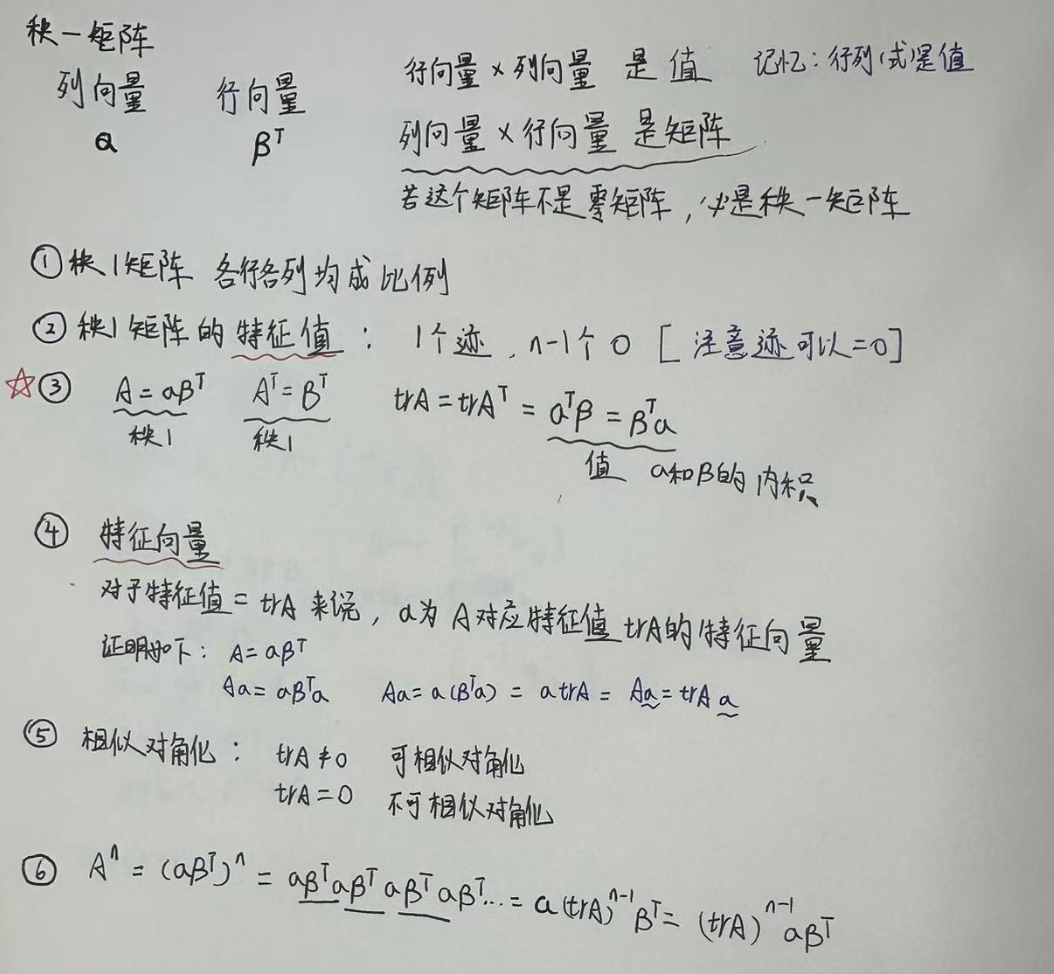 秩一矩阵
列向量 行向量
α βᵀ
行向量×列向量 是值 记忆:行列式是值
列向量×行向量 是矩阵
若这个矩阵不是零矩阵,必是秩一矩阵
① 秩1矩阵 各行各列均成比例
② 秩1矩阵的特征值: 1个迹,n-1个0 [注意迹可以=0]
☆③ A=αβᵀ Aᵀ=βᵀ trA=trAᵀ=αᵀβ=βᵀα
秩1 秩1 值 α和β的内积
④ 特征向量
对于特征值=trA来说,α为A对应特征值trA的特征向量
证明如下: A=αβᵀ
Aα=αβᵀα Aα=α(βᵀα)=αtrA=Aα=trAα
⑤ 相似对角化: trA≠0 可相似对角化
trA=0 不可相似对角化
⑥ Aⁿ=(αβᵀ)ⁿ=αβᵀαβᵀαβᵀαβᵀ...=α(trA)ⁿ⁻¹βᵀ=(trA)ⁿ⁻¹αβᵀ